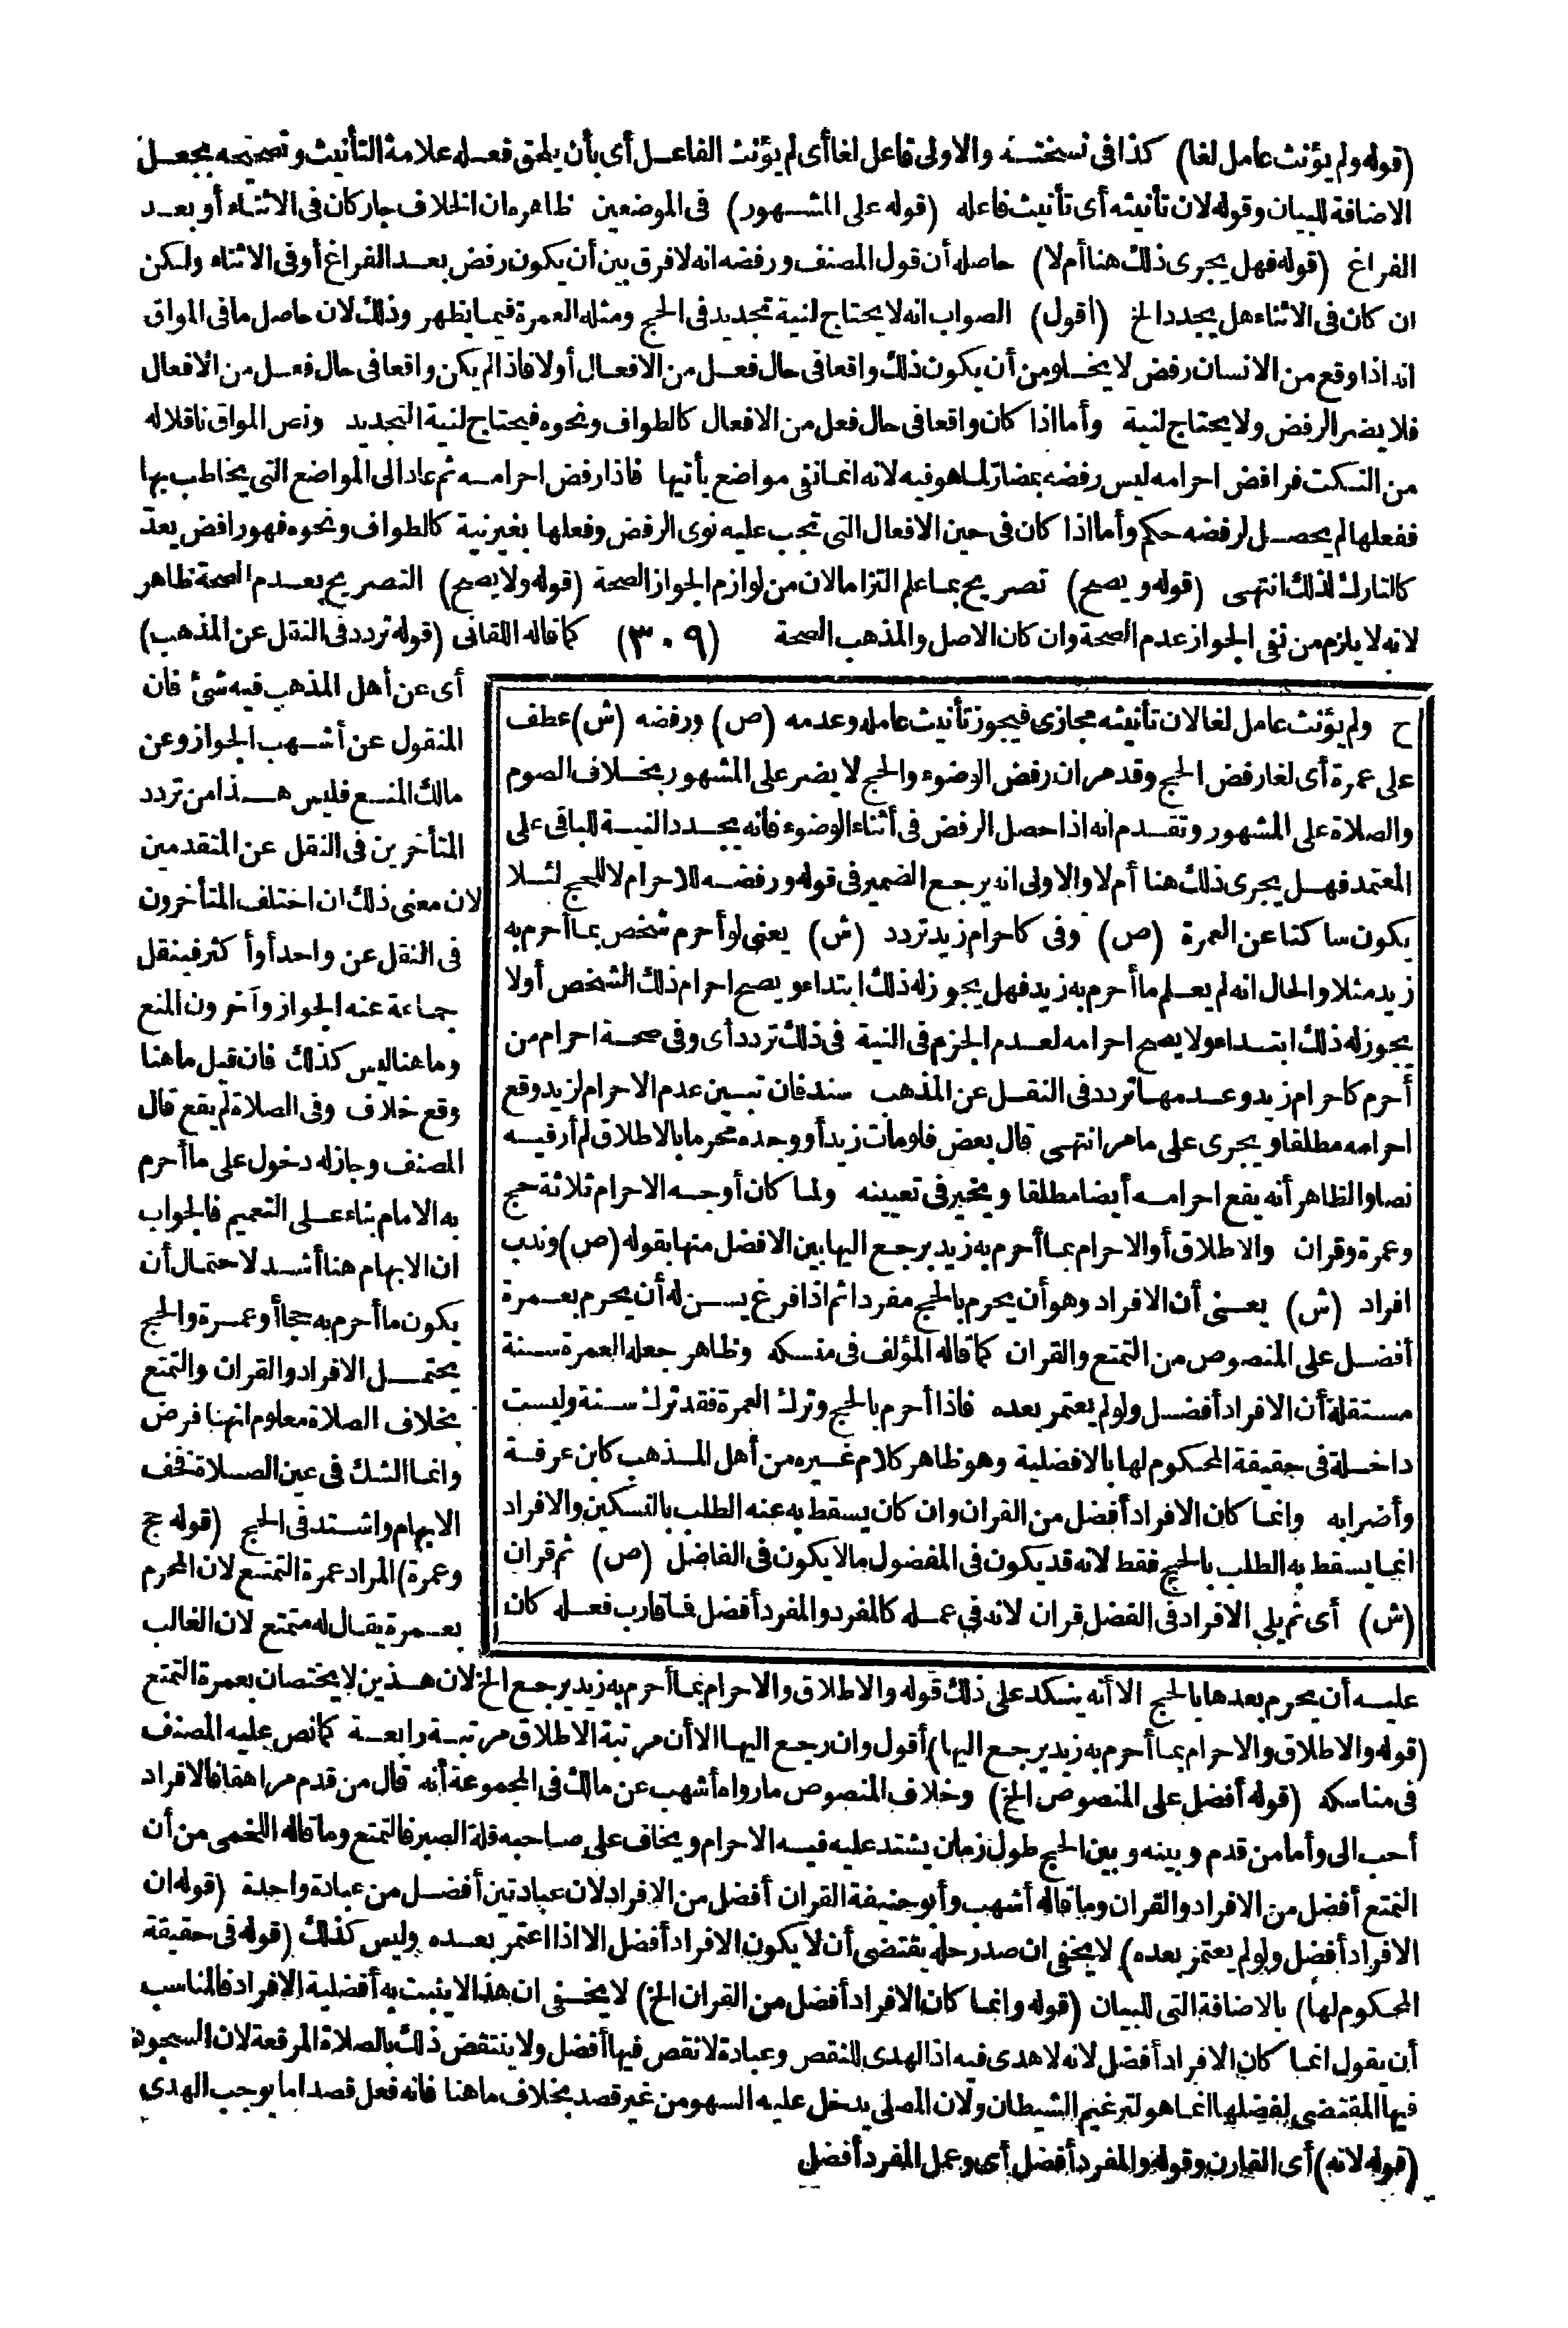 (قوله ولم يؤنث عامل لغا) كذا في نسخته والاولى فاعل لغا أى لم يؤنث الفاعل أى بأن يلحق فعله علامة التأنيث وتصحيحه بجعل
الاضافة للبيان وقوله لان تأنيثه أى تأنيث فاعله (قوله على المشهور) فى الموضعين ظاهره ان الخلاف جار كان فى الاثناء أو بعد
الفراغ (قوله فهل يجرى ذلك هنا أم لا) حاصله أن قول المصنف ورفضه انه لا فرق بين أن يكون رفض بعد الفراغ أو فى الاثناء ولكن
ان كان فى الاثناء هل يجدد الخ (أقول) الصواب انه لا يحتاج لنية تجديد فى الحج ومثله العمرة فيما يظهر وذلك لان حاصل ما فى المواق
انه اذا وقع من الانسان رفض لا يخلو من أن يكون ذلك واقعا فى حال فعل من الافعال أو لا فاذا لم يكن واقعا فى حال فعل من الافعال
فلا يضر الرفض ولا يحتاج لنية وأما اذا كان واقعا فى حال فعل من الافعال كالطواف ونحوه فيحتاج لنية التجديد ونص المواق ناقلا له
من النكت فرافض احرامه ليس رفضه بمضاد لما هو فيه لانه انما نفى مواضع يأتيها فاذا رفض احرامه ثم عاد الى المواضع التى يخاطب بها
ففعلها لم يحصل لرفضه حكم وأما اذا كان فى حين الافعال التى تجب عليه نوى الرفض وفعلها بغير نية كالطواف ونحوه فهو رافض يعد
كالتارك لذلك انتهى (قوله ويصح) تصريح بما علم التزاما لان من لوازم الجواز الصحة (قوله ولا يصح) التصريح بعدم الصحة ظاهر
لانه لا يلزم من نفى الجواز عدم الصحة وان كان الاصل والمذهب الصحة (٣٠٩) كما قاله اللقانى (قوله تردد فى النقل عن المذهب)
أى عن أهل المذهب فيه شئ فان
المنقول عن أشهب الجواز وعن
مالك المنع فليس هذا من تردد
المتأخرين فى النقل عن المتقدمين
لان معنى ذلك ان اختلف المتأخرون
فى النقل عن واحد أو أكثر فينقل
جماعة عنه الجواز وآخرون المنع
وما هنا ليس كذلك فان قيل ما هنا
وقع خلاف وفى الصلاة لم يقع قال
المصنف وجاز له دخول على ما أحرم
به الامام بناء على التعميم فالجواب
ان الابهام هنا أشد لاحتمال أن
يكون ما أحرم به حجا أو عمرة والحج
يحتمل الافراد والقران والتمتع
بخلاف الصلاة معلوم انها فرض
وانما الشك فى عين الصلاة فخف
الابهام واشتد فى الحج (قوله حج
وعمرة) المراد عمرة التمتع لان المحرم
بعمرة يقال له متمتع لان الغالب
ح ولم يؤنث عامل لغا لان تأنيثه مجازى فيجوز تأنيث عامله وعدمه (ص) ورفضه (ش) عطف
على عمرة أى لغا رفض الحج وقد مر ان رفض الوضوء والحج لا يضر على المشهور بخلاف الصوم
والصلاة على المشهور وتقدم انه اذا حصل الرفض فى أثناء الوضوء فانه يجدد النية للباقى على
المعتمد فهل يجرى ذلك هنا أم لا والاولى انه يرجع الضمير فى قوله ورفضه للاحرام لا للحج لئلا
يكون ساكتا عن العمرة (ص) وفى كاحرام زيد تردد (ش) يعنى لو أحرم شخص بما أحرم به
زيد مثلا والحال انه لم يعلم ما أحرم به زيد فهل يجوز له ذلك ابتداء ويصح احرام ذلك الشخص أو لا
يجوز له ذلك ابتداء ولا يصح احرامه لعدم الجزم فى النية فى ذلك تردد أى وفى صحة احرام من
أحرم كاحرام زيد وعدمها تردد فى النقل عن المذهب سند فان تبين عدم الاحرام لزيد وقع
احرامه مطلقا ويجرى على ما مر انتهى قال بعض فلو مات زيد أو وجده محرما بالاطلاق لم أر فيه
نصا والظاهر أنه يقع احرامه أيضا مطلقا ويخير فى تعيينه ولما كان أوجه الاحرام ثلاثة حج
وعمرة وقران والاطلاق أو الاحرام بما أحرم به زيد يرجع اليها بين الافضل منها بقوله (ص) وندب
افراد (ش) يعنى أن الافراد وهو أن يحرم بالحج مفردا ثم اذا فرغ يسن له أن يحرم بعمرة
أفضل على المنصوص من التمتع والقران كما قاله المؤلف فى منسكه وظاهر جعله العمرة سنة
مستقلة أن الافراد أفضل ولو لم يعتمر بعده فاذا أحرم بالحج وترك العمرة فقد ترك سنة وليست
داخلة فى حقيقة المحكوم لها بالافضلية وهو ظاهر كلام غيره من أهل المذهب كابن عرفة
وأضرابه وانما كان الافراد أفضل من القران وان كان يسقط به عنه الطلب بالنسكين والافراد
انما يسقط به الطلب بالحج فقط لانه قد يكون فى المفضول ما لا يكون فى الفاضل (ص) ثم قران
(ش) أى ثم يلى الافراد فى الفضل قران لانه فى عمله كالمفرد والمفرد أفضل فما قارب فعله كان
عليه أن يحرم بعدها بالحج الا أنه ينكد على ذلك قوله والاطلاق والاحرام بما أحرم به زيد يرجع الخ لان هذين لا يختصان بعمرة التمتع
(قوله والاطلاق والاحرام بما أحرم به زيد يرجع اليها) أقول وان رجع اليها الا أن مرتبة الاطلاق مرتبة رابعة كما نص عليه المصنف
فى مناسكه (قوله أفضل على المنصوص الخ) وخلاف المنصوص ما رواه أشهب عن مالك فى المجموعة أنه قال من قدم مراهقا فالافراد
أحب الى وأما من قدم وبينه وبين الحج طول زمان يشتد عليه فيه الاحرام ويخاف على صاحبه قلة الصبر فالتمتع وما قاله اللخمى من أن
التمتع أفضل من الافراد والقران وما قاله أشهب وأبو حنيفة القران أفضل من الافراد لان عبادتين أفضل من عبادة واحدة (قوله ان
الافراد أفضل ولو لم يعتمر بعده) لا يخفى ان صدر حله يقتضى أن لا يكون الافراد أفضل الا اذا اعتمر بعده وليس كذلك (قوله فى حقيقة
المحكوم لها) بالاضافة التى للبيان (قوله وانما كان الافراد أفضل من القران الخ) لا يخفى ان هذا لا يثبت به أفضلية الافراد فالمناسب
أن يقول انما كان الافراد أفضل لانه لا هدى فيه اذ الهدى للنقص وعبادة لا نقص فيها أفضل ولا ينتقض ذلك بالصلاة المرقعة لان السجود
فيها المقتضى لفضلها انما هو لترغيم الشيطان ولان المصلى يدخل عليه السهو من غير قصد بخلاف ما هنا فانه فعل قصدا ما يوجب الهدى
(قوله لانه) أى القارن وقوله والمفرد أفضل أى وعمل المفرد أفضل